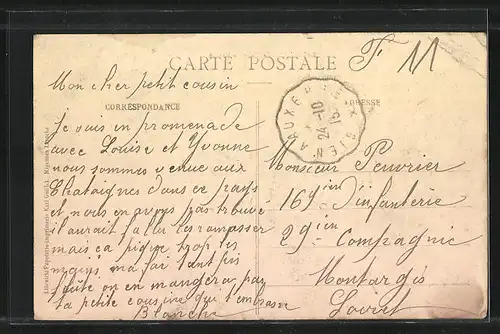 CARTE POSTALE
F M
Mon cher petit cousin
CORRESPONDANCE
ADRESSE
AUXERRE GIEN
24-10
Je suis en promenade
avec Louise et Yvonne
nous sommes venue aux
Chataignes dans ce pays
et nous en avons pas trouvé
il aurait fallu les ramasser
mais ça pique trop les
mains, ma foi tant pis
on en mangera pas
ta petite cousine qui t'embrasse
Blanche
Monsieur Peuvrier
169 ième d'infanterie
29 ième Compagnie
Montargis
Loiret